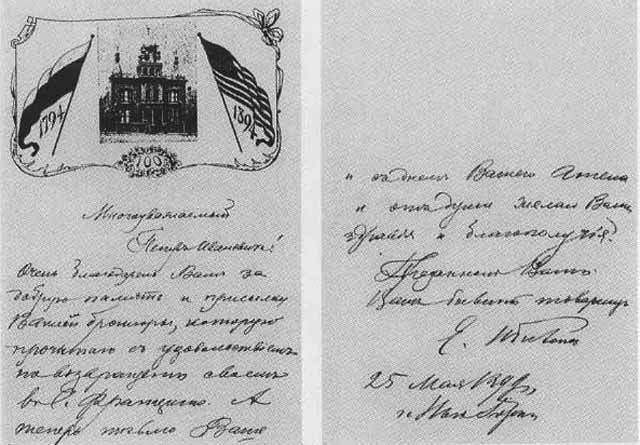 1794
1894
100
Многоуважаемый
Петръ Ивановичъ!
Очень благодаренъ Вамъ за
добрую память и присылку
Вашей брошюры, которую
прочитаю съ удовольствіемъ
по возвращеніи
въ С. Франциско. А
теперь только Ваше
и Вашего Ангела
и отъ души желаю Вамъ
здравія и благополучія.
Преданный Вамъ
Вашъ бывшій товарищъ
25 Мая